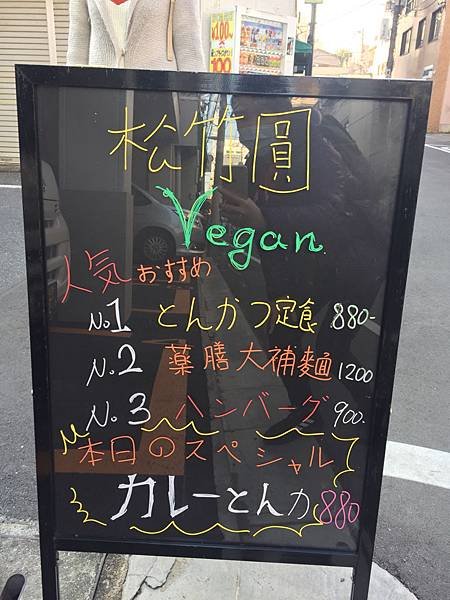 ¥100
100
松竹圓
Vegan
人気おすすめ
No.1 とんかつ定食 880-
No.2 薬膳大補麺 1200
No.3 ハンバーグ 900-
本日のスペシャル
カレーとんカ 880